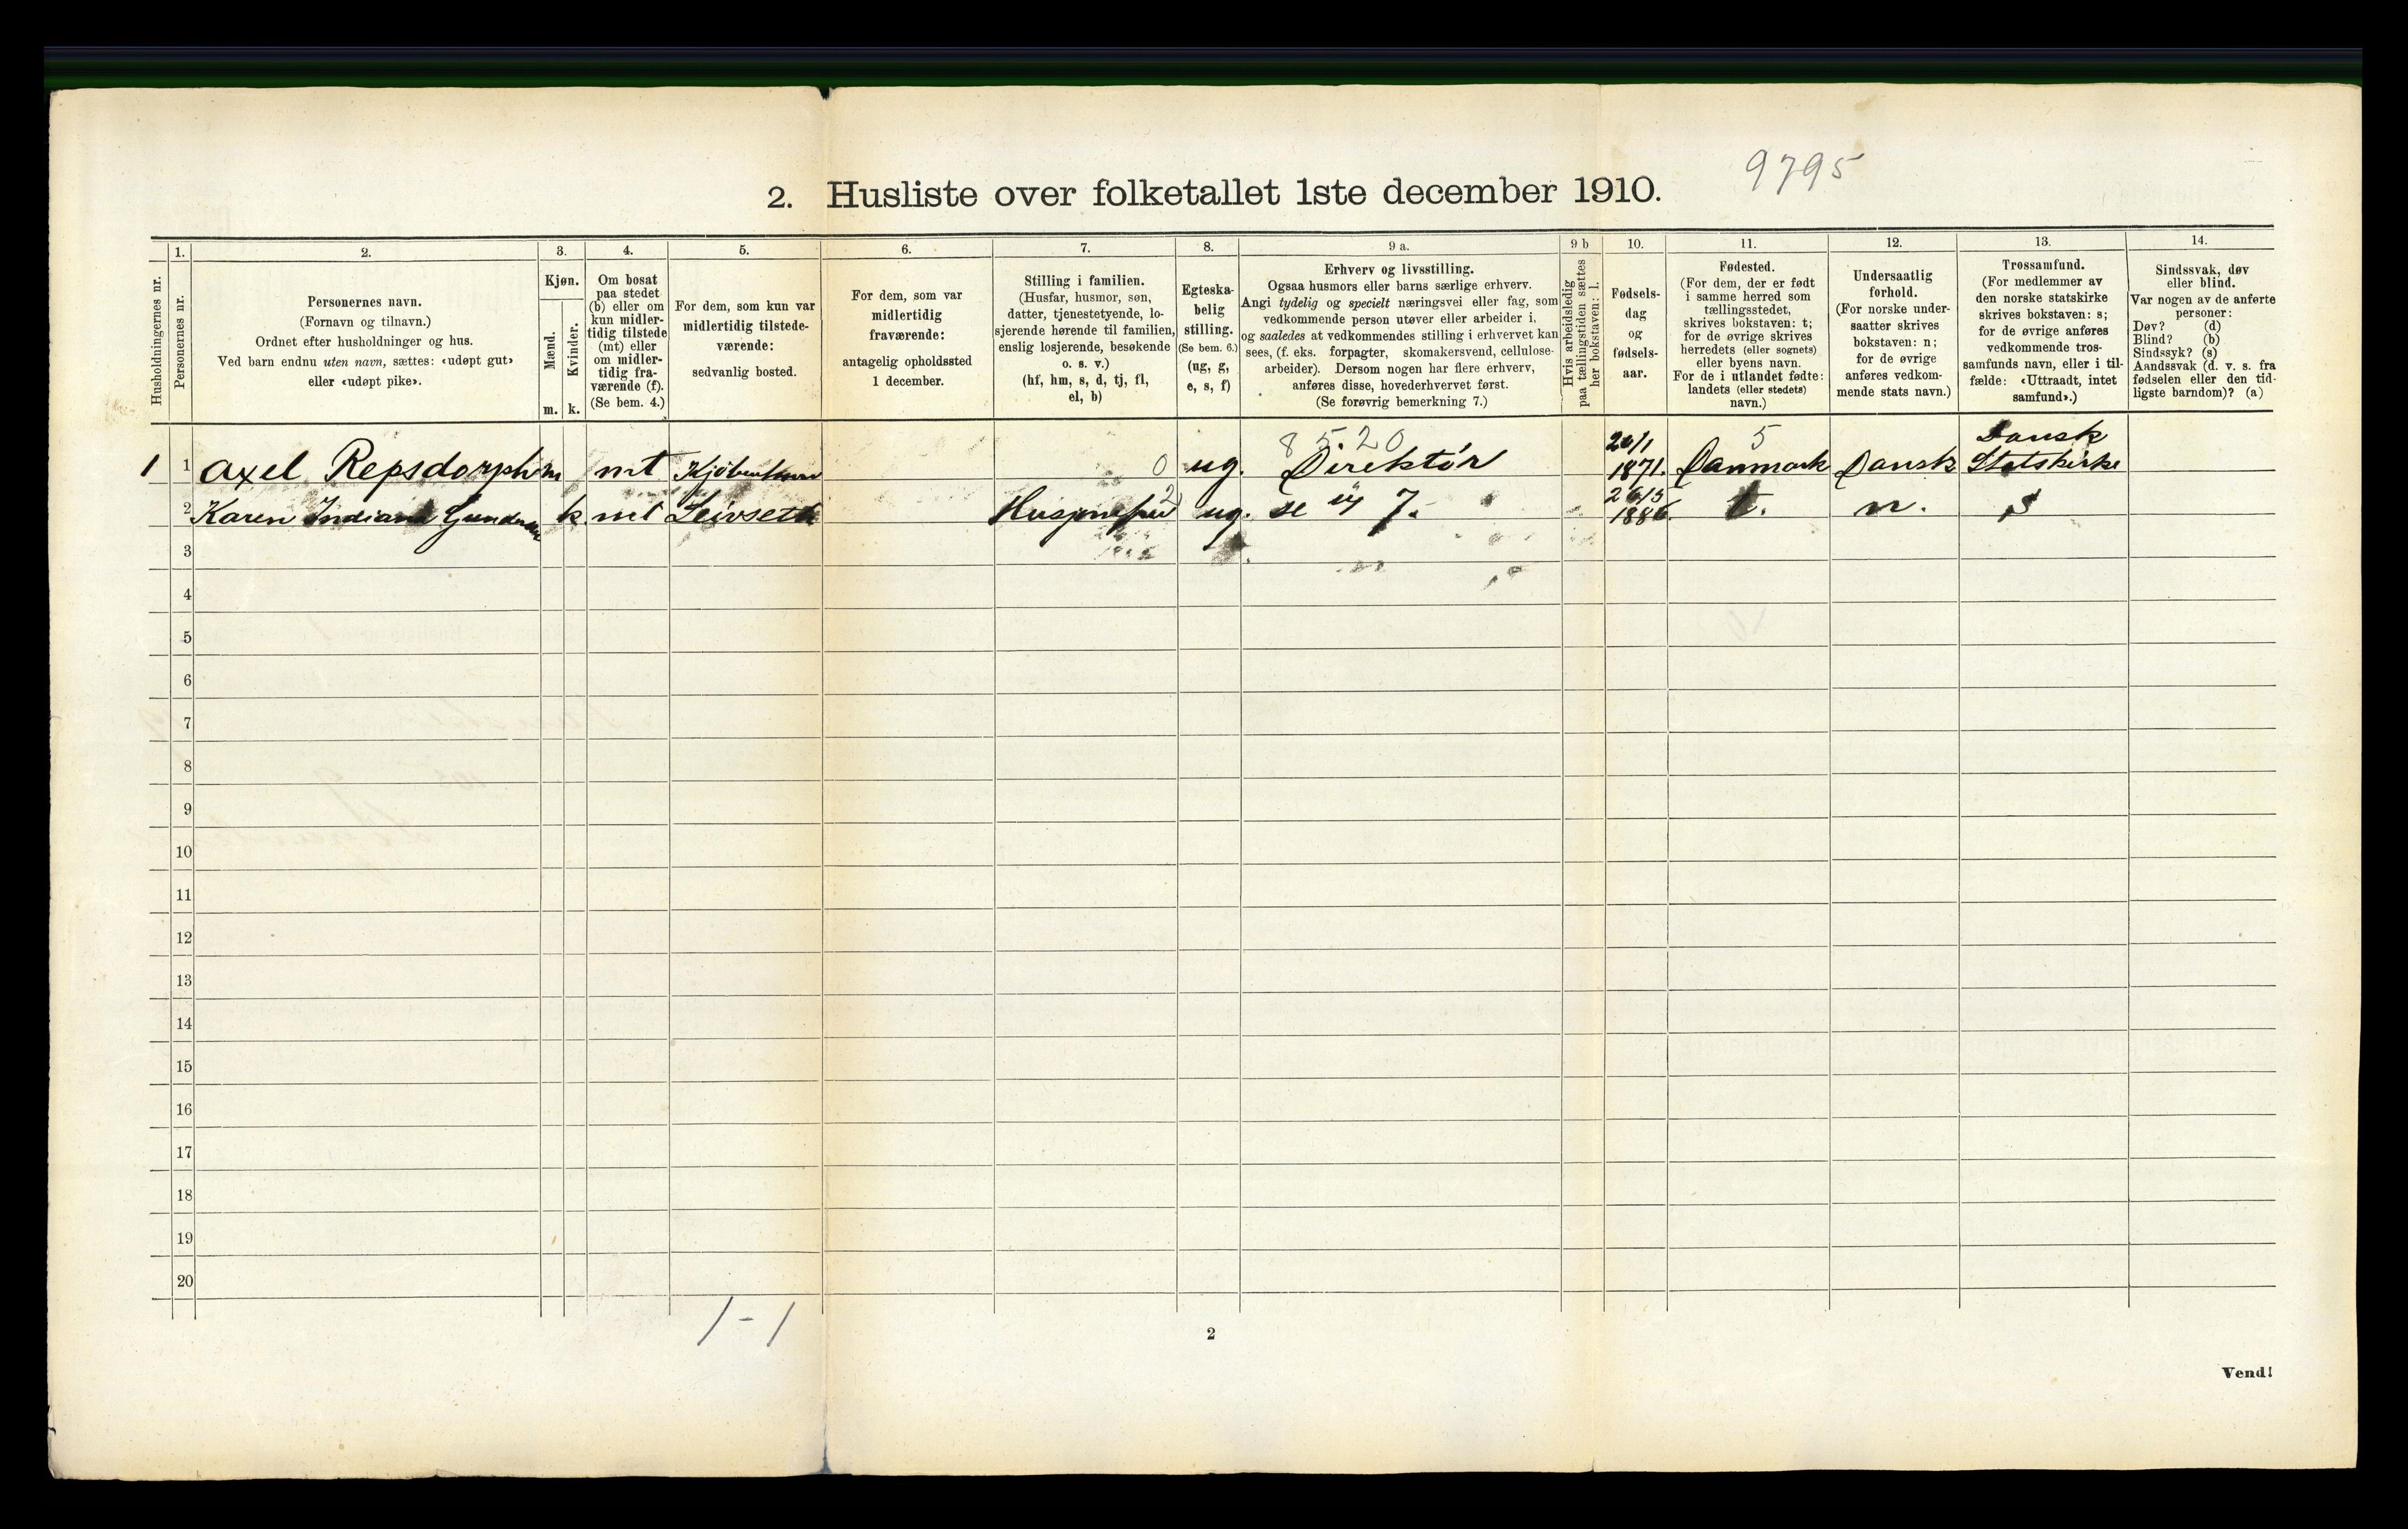 9795
2. Husliste over folketallet 1ste december 1910.
Husholdningernes nr.
1.
Personernes nr.
2.
Personernes navn.
(Fornavn og tilnavn.)
Ordnet efter husholdninger og hus.
Ved barn endnu uten navn, sættes: «udøpt gut»
eller «udøpt pike».
3.
Kjøn.
Mænd.
Kvinder.
m. k.
4.
Om bosat
paa stedet
(b) eller om
kun midler-
tidig tilstede
(mt) eller
om midler-
tidig fra-
værende (f).
(Se bem. 4.)
5.
For dem, som kun var
midlertidig tilstede-
værende:
sedvanlig bosted.
6.
For dem, som var
midlertidig
fraværende:
antagelig opholdssted
1 december.
7.
Stilling i familien.
(Husfar, husmor, søn,
datter, tjenestetyende, lo-
sjerende hørende til familien,
enslig losjerende, besøkende
o. s. v.)
(hf, hm, s, d, tj, fl,
el, b)
8.
Egteska-
belig
stilling.
(Se bem. 6.)
(ug, g,
e, s, f)
9 a.
Erhverv og livsstilling.
Ogsaa husmors eller barns særlige erhverv.
Angi tydelig og specielt næringsvei eller fag, som
vedkommende person utøver eller arbeider i,
og saaledes at vedkommendes stilling i erhvervet kan
sees, (f. eks. forpagter, skomakersvend, cellulose-
arbeider). Dersom nogen har flere erhverv,
anføres disse, hovederhvervet først.
(Se forøvrig bemerkning 7.)
9 b
Hvis arbeidsledig
paa tællingstiden sættes
her bokstaven: l.
10.
Fødsels-
dag
og
fødsels-
aar.
11.
Fødested.
(For dem, der er født
i samme herred som
tællingsstedet,
skrives bokstaven: t;
for de øvrige skrives
herredets (eller sognets)
eller byens navn.
For de i utlandet fødte:
landets (eller stedets)
navn.)
12.
Undersaatlig
forhold.
(For norske under-
saatter skrives
bokstaven: n;
for de øvrige
anføres vedkom-
mende stats navn.)
13.
Trossamfund.
(For medlemmer av
den norske statskirke
skrives bokstaven: s;
for de øvrige anføres
vedkommende tros-
samfunds navn, eller i til-
fælde: «Uttraadt, intet
samfund».)
14.
Sindssvak, døv
eller blind.
Var nogen av de anførte
personer:
Døv? (d)
Blind? (b)
Sindssyk? (s)
Aandssvak (d. v. s. fra
fødselen eller den tid-
ligste barndom)? (a)
8520 20/1 5 Dansk
1 1 Axel Repsdorph m mt 0 ug. Direktör 1871. Danmark Dansk Statskirke
2 Karen Indiana k. mt Leivseth 2 ug. se 7. 1886. t. n. s
3
4
5
6
7
8
9
10
11
12
13
14
15
16
17
18
19
20
1-1
2
Vend!